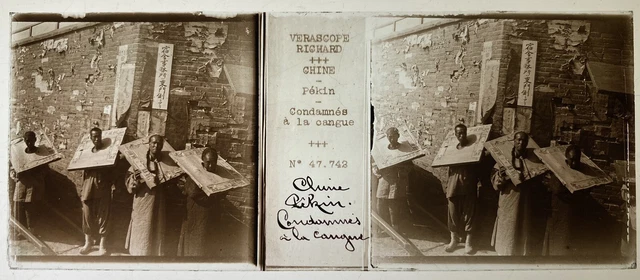 VERASCOPE
RICHARD
+++
CHINE
–
Pékin
–
Condamnés
à la cangue
+++
N° 47.742
Chine
Pékin.
Condamnés
à la cangue